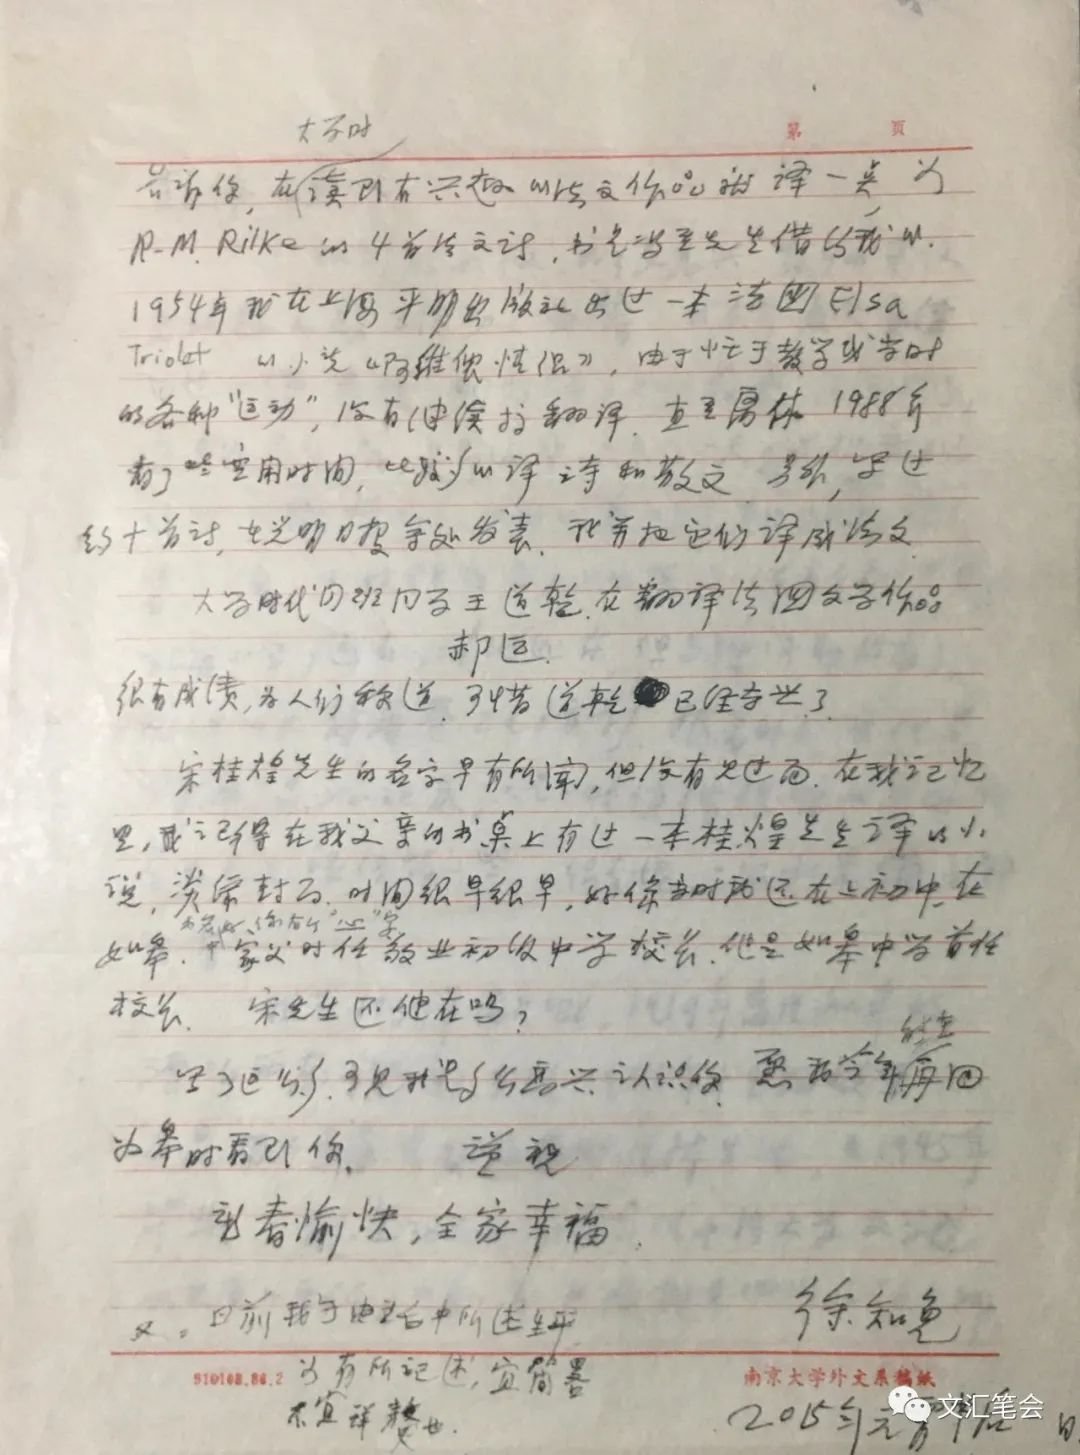 大学时
第 页
告诉你，在读到有兴趣的法文作品就译一点，如
R.M. Rilke 的4首法文诗，书是冯至先生借给我的.
1954年我在上海平明出版社出过一本法国Elsa
Triolet 的小说《阿维侬情侣》，由于忙于教学或当时
的各种“运动”，没有继续搞翻译. 直至离休 1988年
有了些空闲时间，比较多的译诗和散文. 另外，写过
约十首诗，在光明日报等处发表. 我并把它们译成法文.
大学时代同班同学王道乾. 在翻译法国文学作品
郝运.
很有成绩，为人们称道. 可惜道乾已经去世了.
宋桂煌先生的名字早有所闻，但没有见过面. 在我记忆
里，我记得在我父亲的书桌上有过一本桂煌先生译的小
说，淡绿封面. 时间很早很早，好像当时我还在上初中. 在
书名好像有个“心”字
如皋. 家父时任敬业初级中学校长. 他是如皋中学首任
校长. 宋先生还健在吗？
写了这么多. 可见我是多么高兴认识你. 愿我今年能再回
如皋时看到你. 谨祝
新春愉快，全家幸福.
徐知免
又。日前我于电话中所述生平
如有所记述，宜简略
不宜详 也.
910108.86.2
南京大学外文系稿纸
2015年元 日
文汇笔会